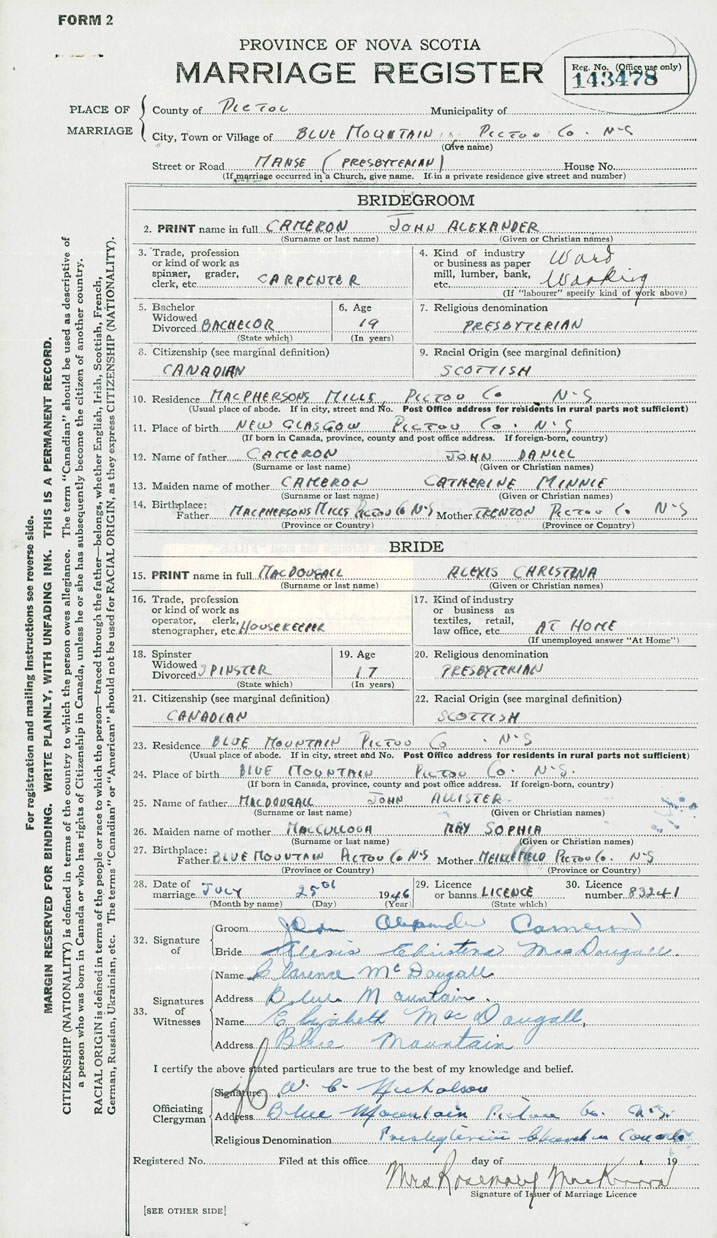 FORM 2
PROVINCE OF NOVA SCOTIA
MARRIAGE REGISTER
Reg. No. (Office use only)
143478
PLACE OF MARRIAGE
County of PICTOU Municipality of
City, Town or Village of BLUE MOUNTAIN PICTOU CO. N-S
(Give name)
Street or Road MANSE (PRESBYTERIAN) House No.
(If marriage occurred in a Church, give name. If in a private residence give street and number)
BRIDEGROOM
2. PRINT name in full CAMERON JOHN ALEXANDER
(Surname or last name) (Given or Christian names)
3. Trade, profession or kind of work as spinner, grader, clerk, etc. CARPENTER
4. Kind of industry or business as paper mill, lumber, bank, etc. Wood Working
(If "labourer" specify kind of work above)
5. Bachelor Widowed Divorced BACHELOR
(State which)
6. Age 19
(In years)
7. Religious denomination
PRESBYTERIAN
8. Citizenship (see marginal definition)
CANADIAN
9. Racial Origin (see marginal definition)
SCOTTISH
10. Residence MACPHERSONS MILLS PICTOU CO N-S
(Usual place of abode. If in city, street and No. Post Office address for residents in rural parts not sufficient)
11. Place of birth NEW GLASGOW PICTOU CO. N-S
(If born in Canada, province, county and post office address. If foreign-born, country)
12. Name of father CAMERON JOHN DANIEL
(Surname or last name) (Given or Christian names)
13. Maiden name of mother CAMERON CATHERINE MINNIE
(Surname or last name) (Given or Christian names)
14. Birthplace: Father MACPHERSONS MILLS PICTOU CO N-S Mother TRENTON PICTOU CO N-S
(Province or Country) (Province or Country)
BRIDE
15. PRINT name in full MACDOUGALL ALEXIS CHRISTENA
(Surname or last name) (Given or Christian names)
16. Trade, profession or kind of work as operator, clerk, stenographer, etc. HOUSEKEEPER
17. Kind of industry or business as textiles, retail, law office, etc. AT HOME
(If unemployed answer "At Home")
18. Spinster Widowed Divorced SPINSTER
(State which)
19. Age 17
(In years)
20. Religious denomination
PRESBYTERIAN
21. Citizenship (see marginal definition)
CANADIAN
22. Racial Origin (see marginal definition)
SCOTTISH
23. Residence BLUE MOUNTAIN PICTOU CO. N-S
(Usual place of abode. If in city, street and No. Post Office address for residents in rural parts not sufficient)
24. Place of birth BLUE MOUNTAIN PICTOU CO. N-S.
(If born in Canada, province, county and post office address. If foreign-born, country)
25. Name of father MACDOUGALL JOHN ALLISTER
(Surname or last name) (Given or Christian names)
26. Maiden name of mother MACCULLOCH MAY SOPHIA
(Surname or last name) (Given or Christian names)
27. Birthplace: Father BLUE MOUNTAIN PICTOU CO N-S Mother PICTOU CO. N-S
(Province or Country) (Province or Country)
28. Date of marriage JULY 25th 1946
(Month by name) (Day) (Year)
29. Licence or banns LICENCE
(State which)
30. Licence number 83241
32. Signature of
Groom John Alexander Cameron
Bride Alexis Christena MacDougall
33. Signatures of Witnesses
Name Clarence McDougall
Address Blue Mountain.
Name Elizabeth MacDougall,
Address Blue Mountain
I certify the above stated particulars are true to the best of my knowledge and belief.
Officiating Clergyman
Signature W. C. Nicholson
Address Blue Mountain Pictou Co. N.S.
Religious Denomination Presbyterian Church in Canada
Registered No. Filed at this office day of 19
Mrs Rosemary
Signature of Issuer of Marriage Licence
[SEE OTHER SIDE]
For registration and mailing instructions see reverse side.
MARGIN RESERVED FOR BINDING. WRITE PLAINLY, WITH UNFADING INK. THIS IS A PERMANENT RECORD.
CITIZENSHIP (NATIONALITY) is defined in terms of the country to which the person owes allegiance. The term "Canadian" should be used as descriptive of
a person who was born in Canada or who has rights of Citizenship in Canada, unless he or she has subsequently become the citizen of another country.
RACIAL ORIGIN is defined in terms of the people or race to which the person—traced through the father—belongs, whether English, Irish, Scottish, French,
German, Russian, Ukrainian, etc. The terms "Canadian" or "American" should not be used for RACIAL ORIGIN, as they express CITIZENSHIP (NATIONALITY).